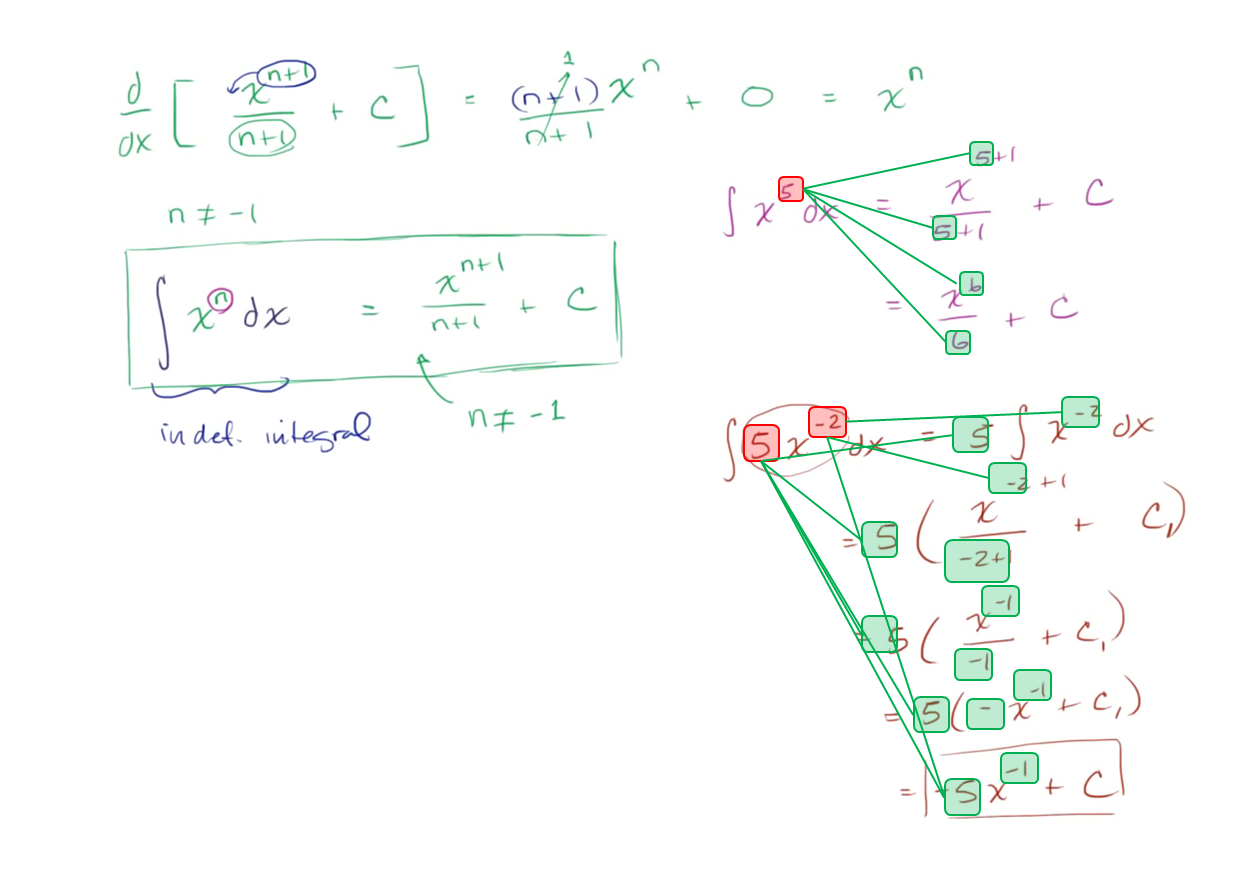 d/dx [ x^(n+1)/(n+1) + C ] = (n+1)/(n+1) x^n + 0 = x^n
1
n ≠ -1
∫ x^n dx = x^(n+1)/(n+1) + C
n ≠ -1
indef. integral
∫ x^5 dx = x^(5+1)/(5+1) + C
= x^6/6 + C
∫ 5 x^-2 dx = 5 ∫ x^-2 dx
= 5 ( x^(-2+1)/(-2+1) + C₁ )
= 5 ( x^-1/-1 + C₁ )
= 5 ( - x^-1 + C₁ )
= -5 x^-1 + C